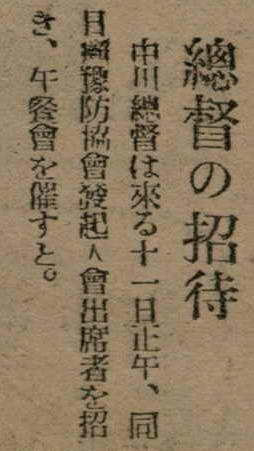 總督の招待
中川總督は來る十一日正午、同
日癩豫防協會發起人會出席者を招
き、午餐會を催すと。